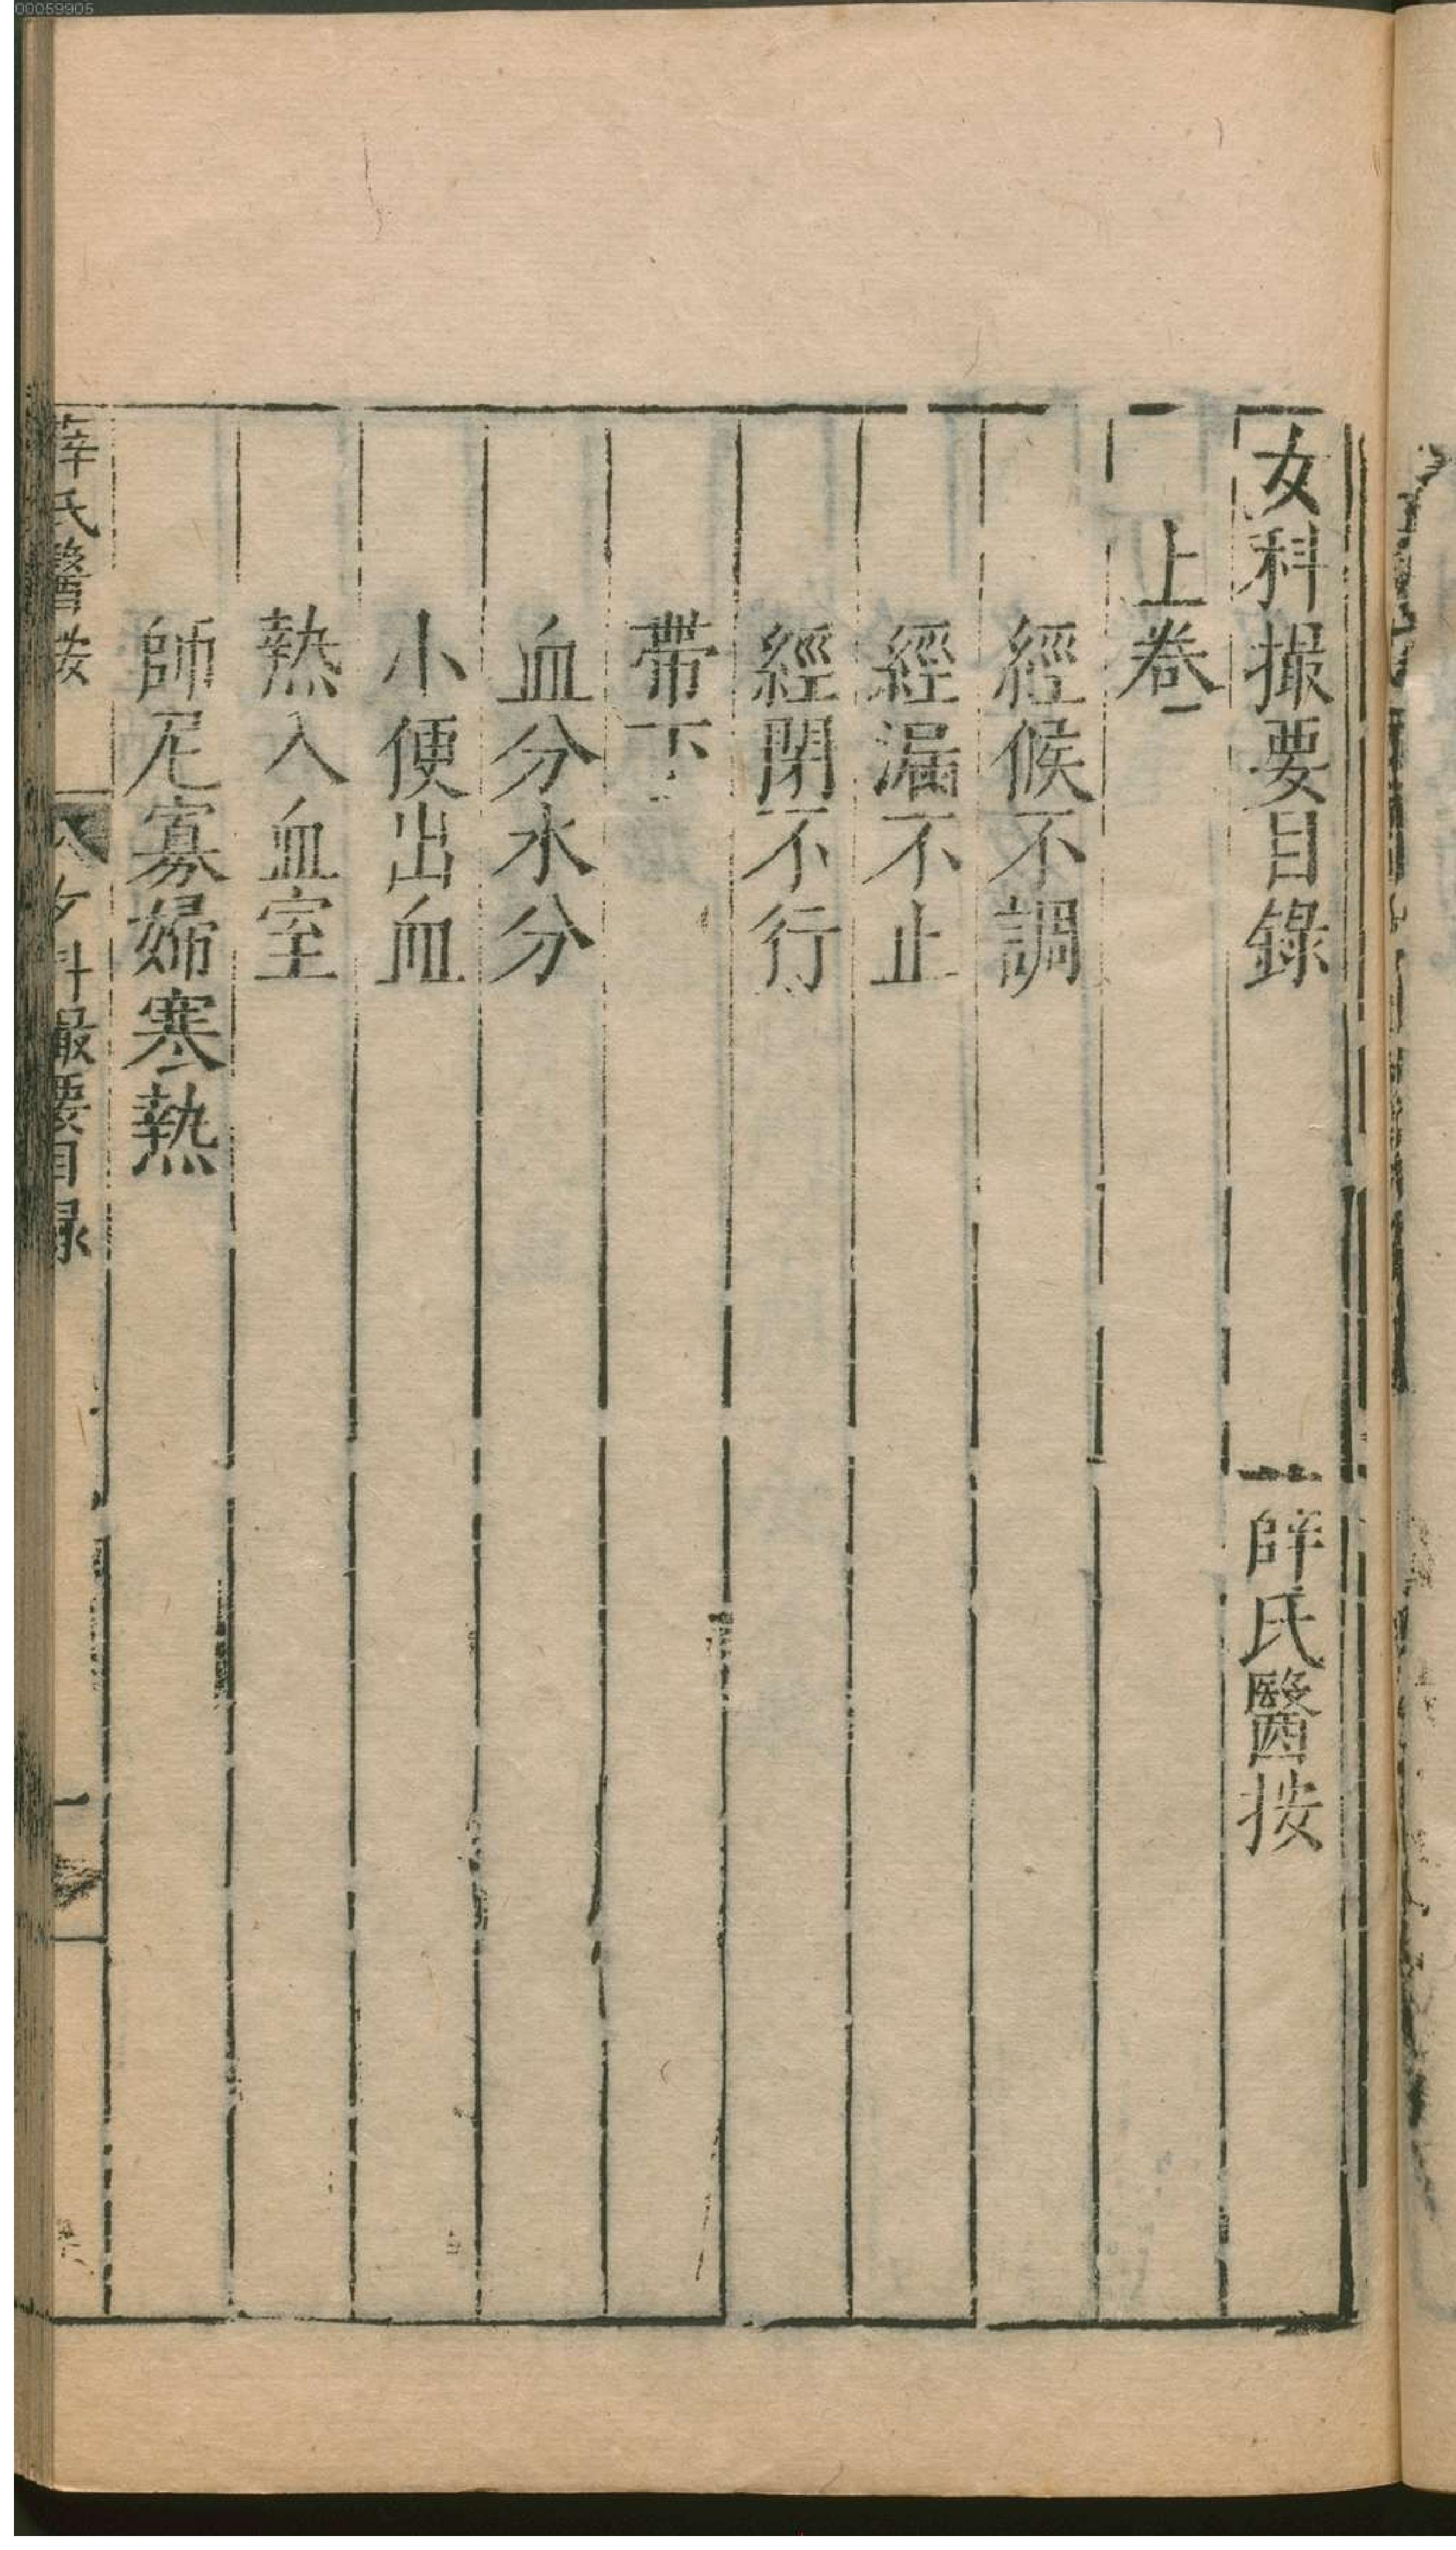 00059905
女科撮要目錄 薛氏醫按
上卷
經候不調
經漏不止
經閉不行
帶下
血分水分
小便出血
熱入血室
師尼寡婦寒熱
薛氏醫按 女科撮要目錄 一